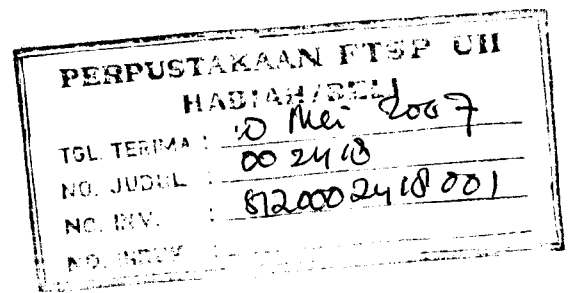 PERPUSTAKAAN FTSP UII
HADIAH/BELI
TGL. TERIMA : Mei 2007
NO. JUDUL : 002418
NO. INV. : 5120002418001
NO. INDUK